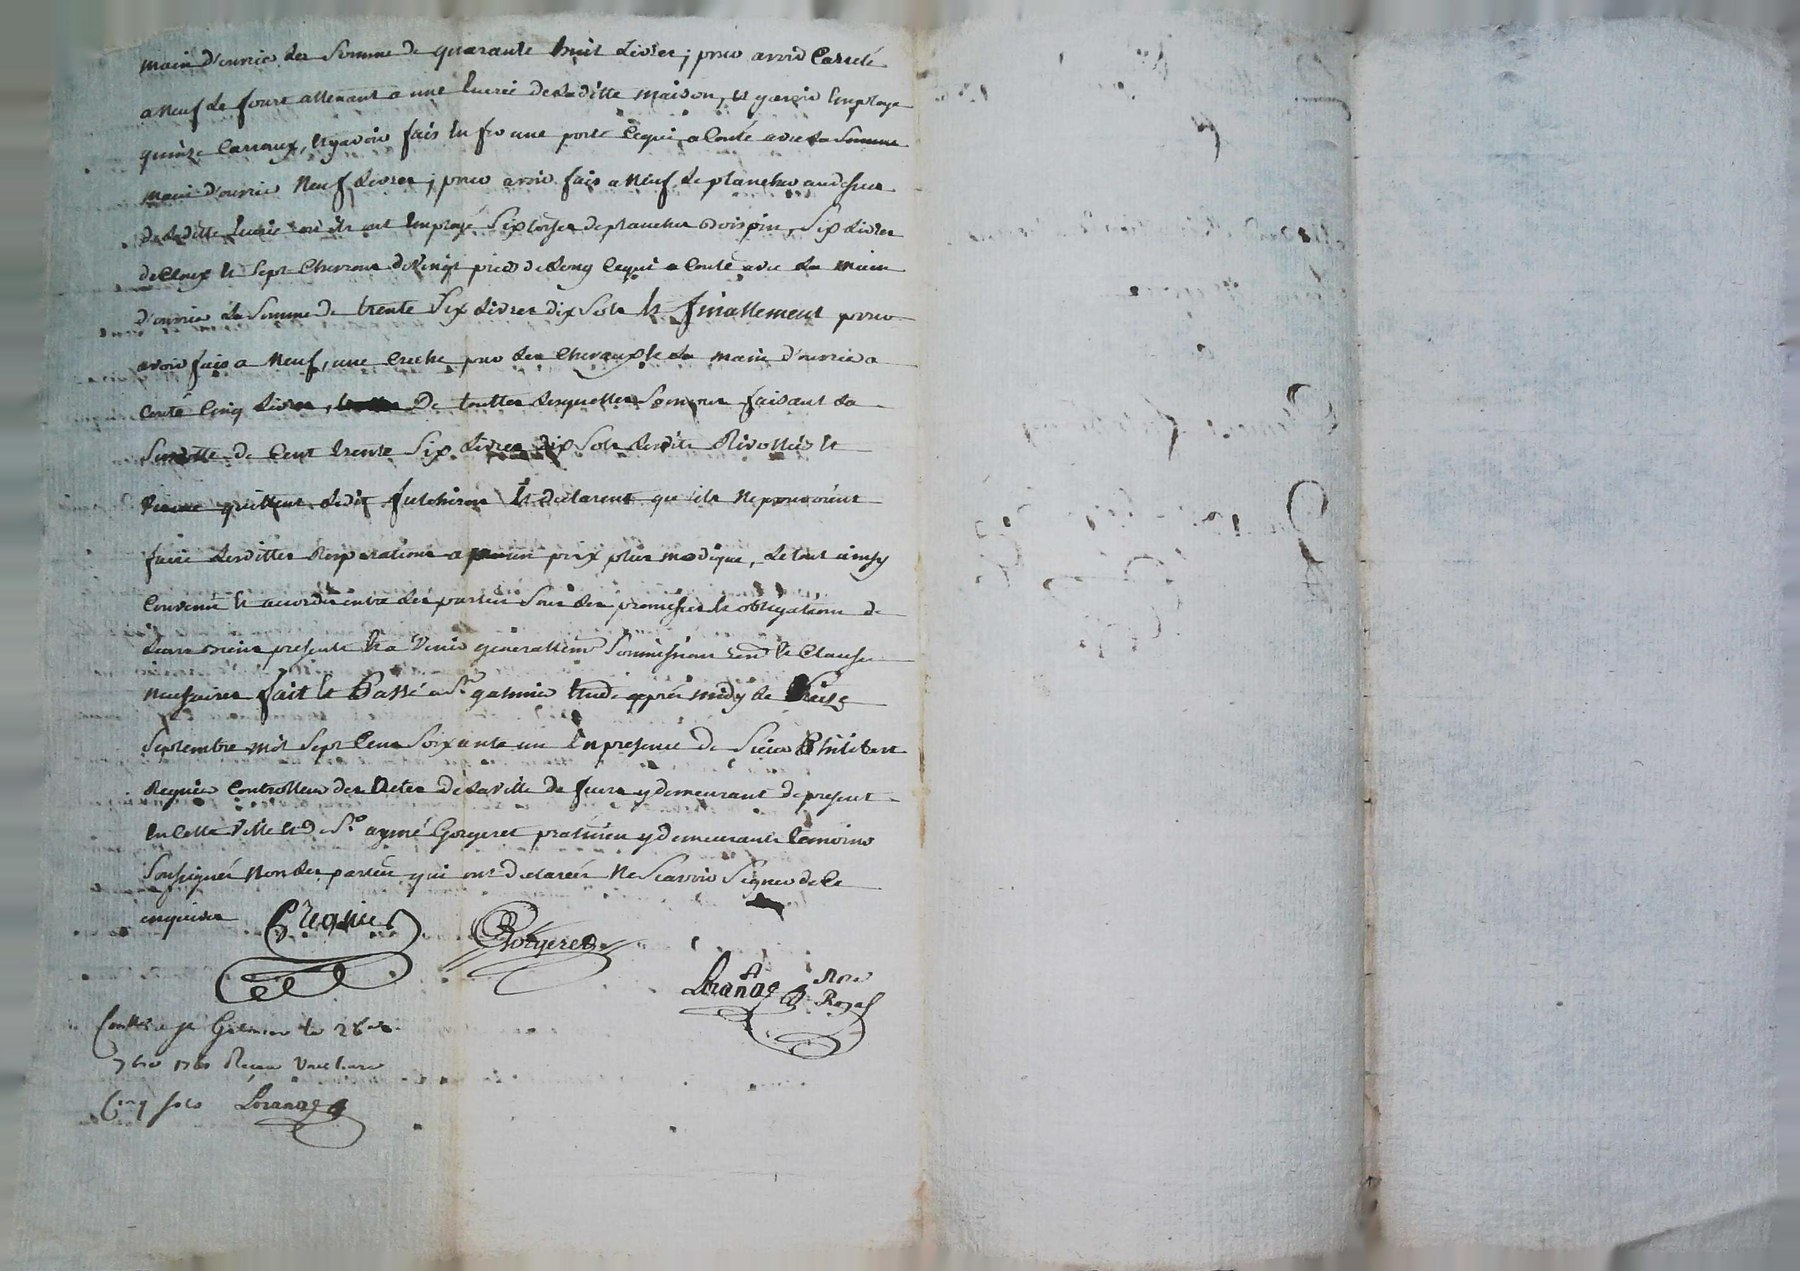 main d'ouvrier la somme de quarante huit livres ; pour avoir Carrelé
a Neuf le four attenant a une Ecurie de laditte maison, et y avoir Employé
quinze Carraux, et y avoir fait en fer une porte ce qui a Couté avec la somme
main d'ouvrier Neuf livres ; pour avoir fais a Neuf le plancher au dessus
de laditte Ecurie ou ils ont Employé Six toises de planches bois pin, Six livres
de Cloux et Sept Chevrons de vingt pieds de Long Ce qui a Couté avec La main
d'ouvrier La Somme de trente Six Livres dix Sols et finallement pour
avoir fais a Neuf, une Creche pour les Chevaux et la main d'ouvrier a
Couté Cinq Livres, De touttes lesquelles Sommes faisant La
Susditte de Cent trente Six Livres dix Sols lesdits et
quittent Ledit futchiron Et declarent qu'ils Ne pouvoient
faire Lesdittes Reparations a prix plus modique, Le tout ainsy
Convenu et accordé entre les parties Sous les promesses et obligations de
Leurs biens presents et a Venir generallem Soumissions et Clauses
necessaires fait et Passé a St galmier Etude apprés midy le Seize
Septembre mil Sept Cent Soixante un En presence de Sieur Philibert
Regnier Controlleur des Actes de La ville de feurs y demeurant de present
En Cette Ville et de Sr aymé Gorgeret praticien y demeurant temoins
Soussignés Non les parties qui ont declarées Ne Scavoir Signer de Ce
enquises Regnier Gorgeret
Lorange Nore
Royal
Contlé a St Galmier le 28
7bre 1761 Recu
Cinq sols Lorange